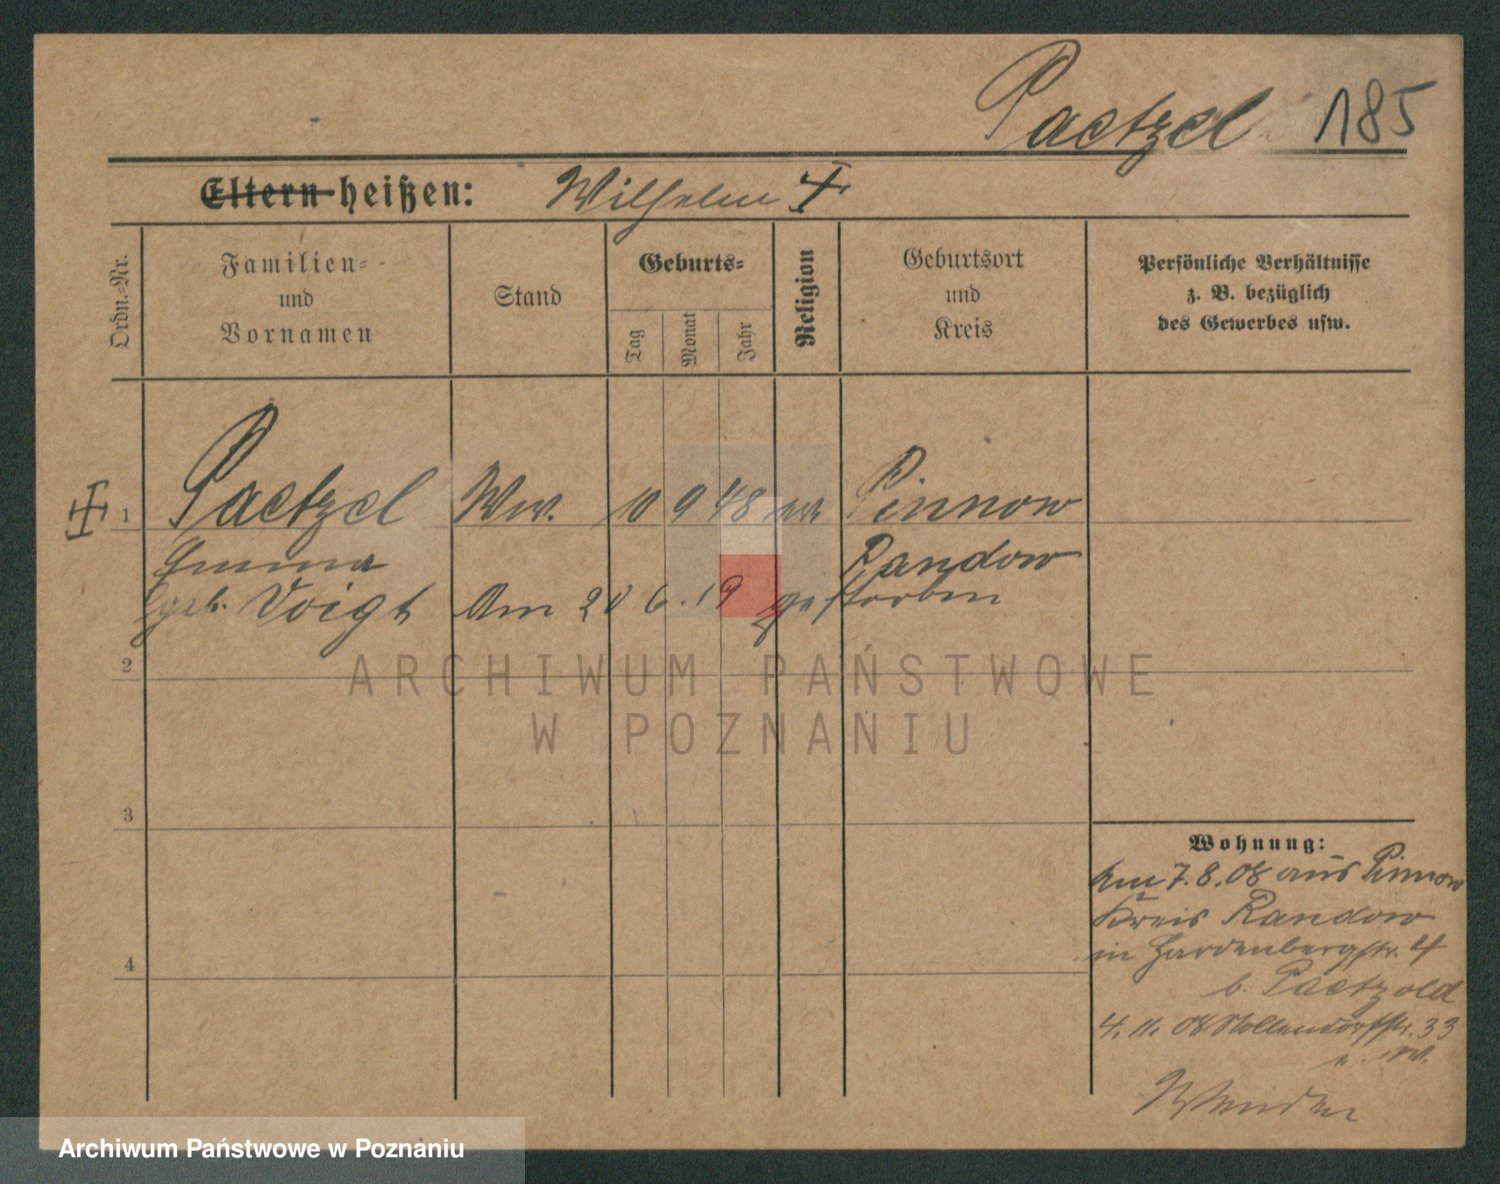 Paetzel 185
Eltern heißen: Wilhelm
Ordn.-Nr.
Familien- und Vornamen
Stand
Geburts-
Tag
Monat
Jahr
Religion
Geburtsort und Kreis
Persönliche Verhältnisse
z. B. bezüglich
des Gewerbes usw.
1 Paetzel Ww. 10 9 48 Pinnow
Emma Randow
geb. Voigt Am 20 6. 19 gestorben
2
3
4
Wohnung:
Am 7.8.08 aus Pinnow
Kreis Randow
in Hardenbergstr. 4
b. Paetzold
4. 11. 08 Nollendorfstr. 33
ARCHIWUM PAŃSTWOWE
W POZNANIU
Archiwum Państwowe w Poznaniu